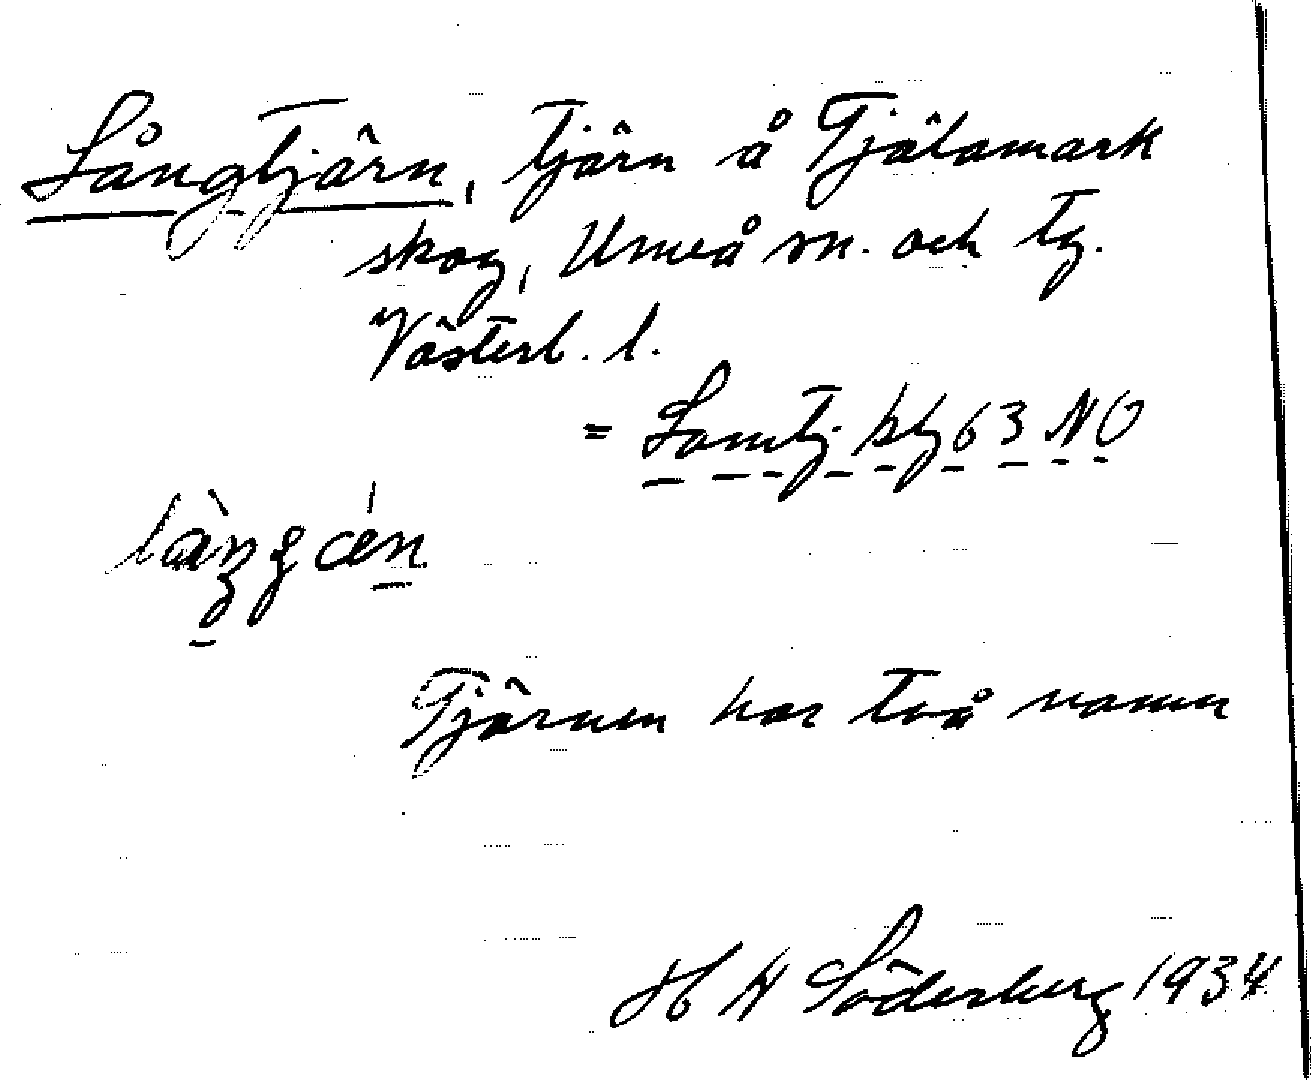 Långtjärn, tjärn å Tjälamark
skog, Umeå sn. och tg.
Västerb. l.
= Lomtj. kbl 63 NO
Tjärnen har två namn
H W Söderberg 1934